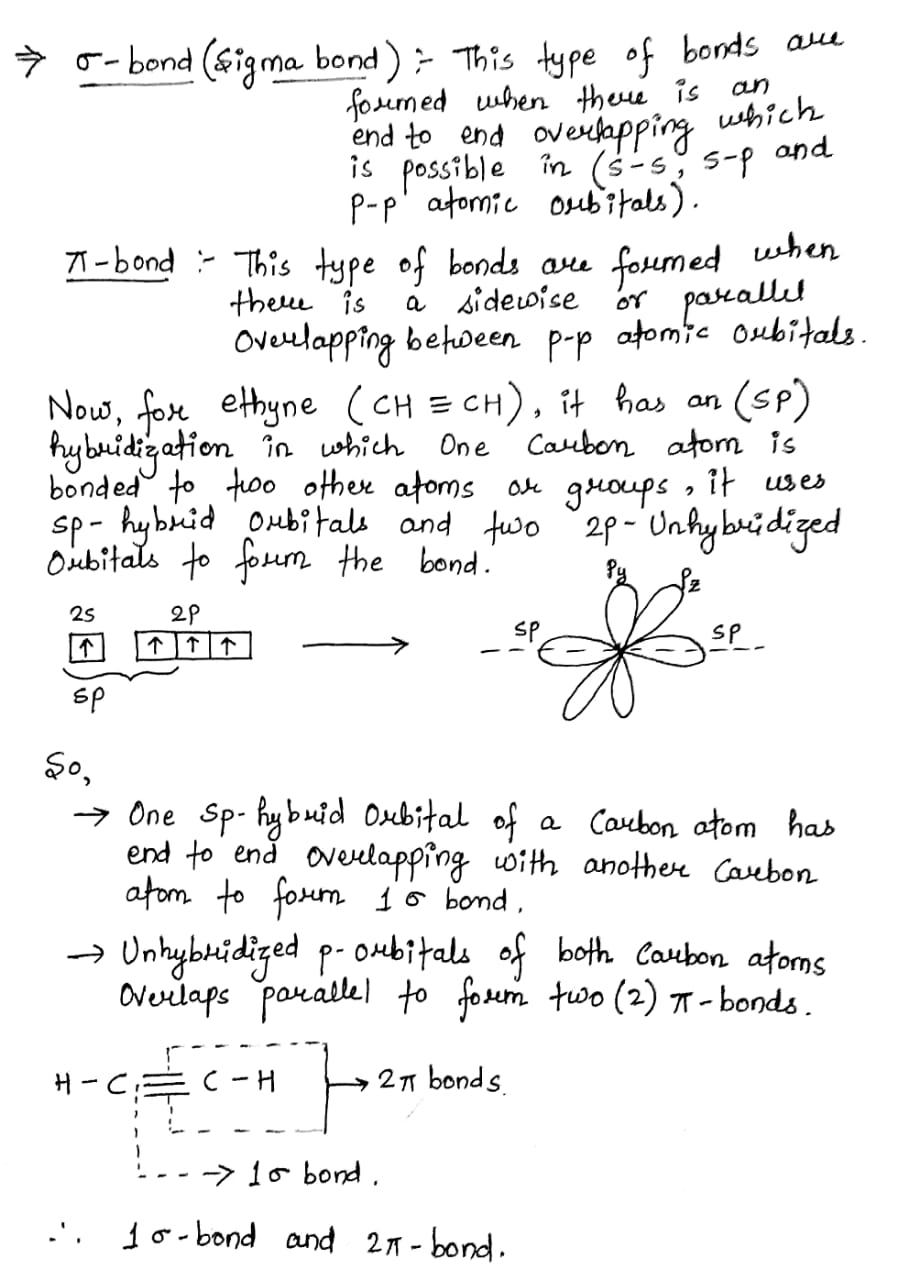 ⇒ σ-bond (Sigma bond) :- This type of bonds are
formed when there is an
end to end overlapping which
is possible in (s-s, s-p and
p-p atomic orbitals).
π-bond :- This type of bonds are formed when
there is a sidewise or parallel
Overlapping between p-p atomic orbitals.
Now, for ethyne (CH ≡ CH), it has an (SP)
hybridization in which One Carbon atom is
bonded to two other atoms or groups, it uses
sp-hybrid orbitals and two 2p-Unhybridized
Orbitals to form the bond.
2s 2P
↑ ↑ ↑ ↑
sp
Py Pz
SP SP
So,
→ One sp-hybrid Orbital of a Carbon atom has
end to end overlapping with another Carbon
atom to form 1 σ bond.
→ Unhybridized p-orbitals of both Carbon atoms
Overlaps parallel to form two (2) π-bonds.
H - C ≡ C - H → 2π bonds.
→ 1σ bond.
∴ 1 σ-bond and 2π-bond.